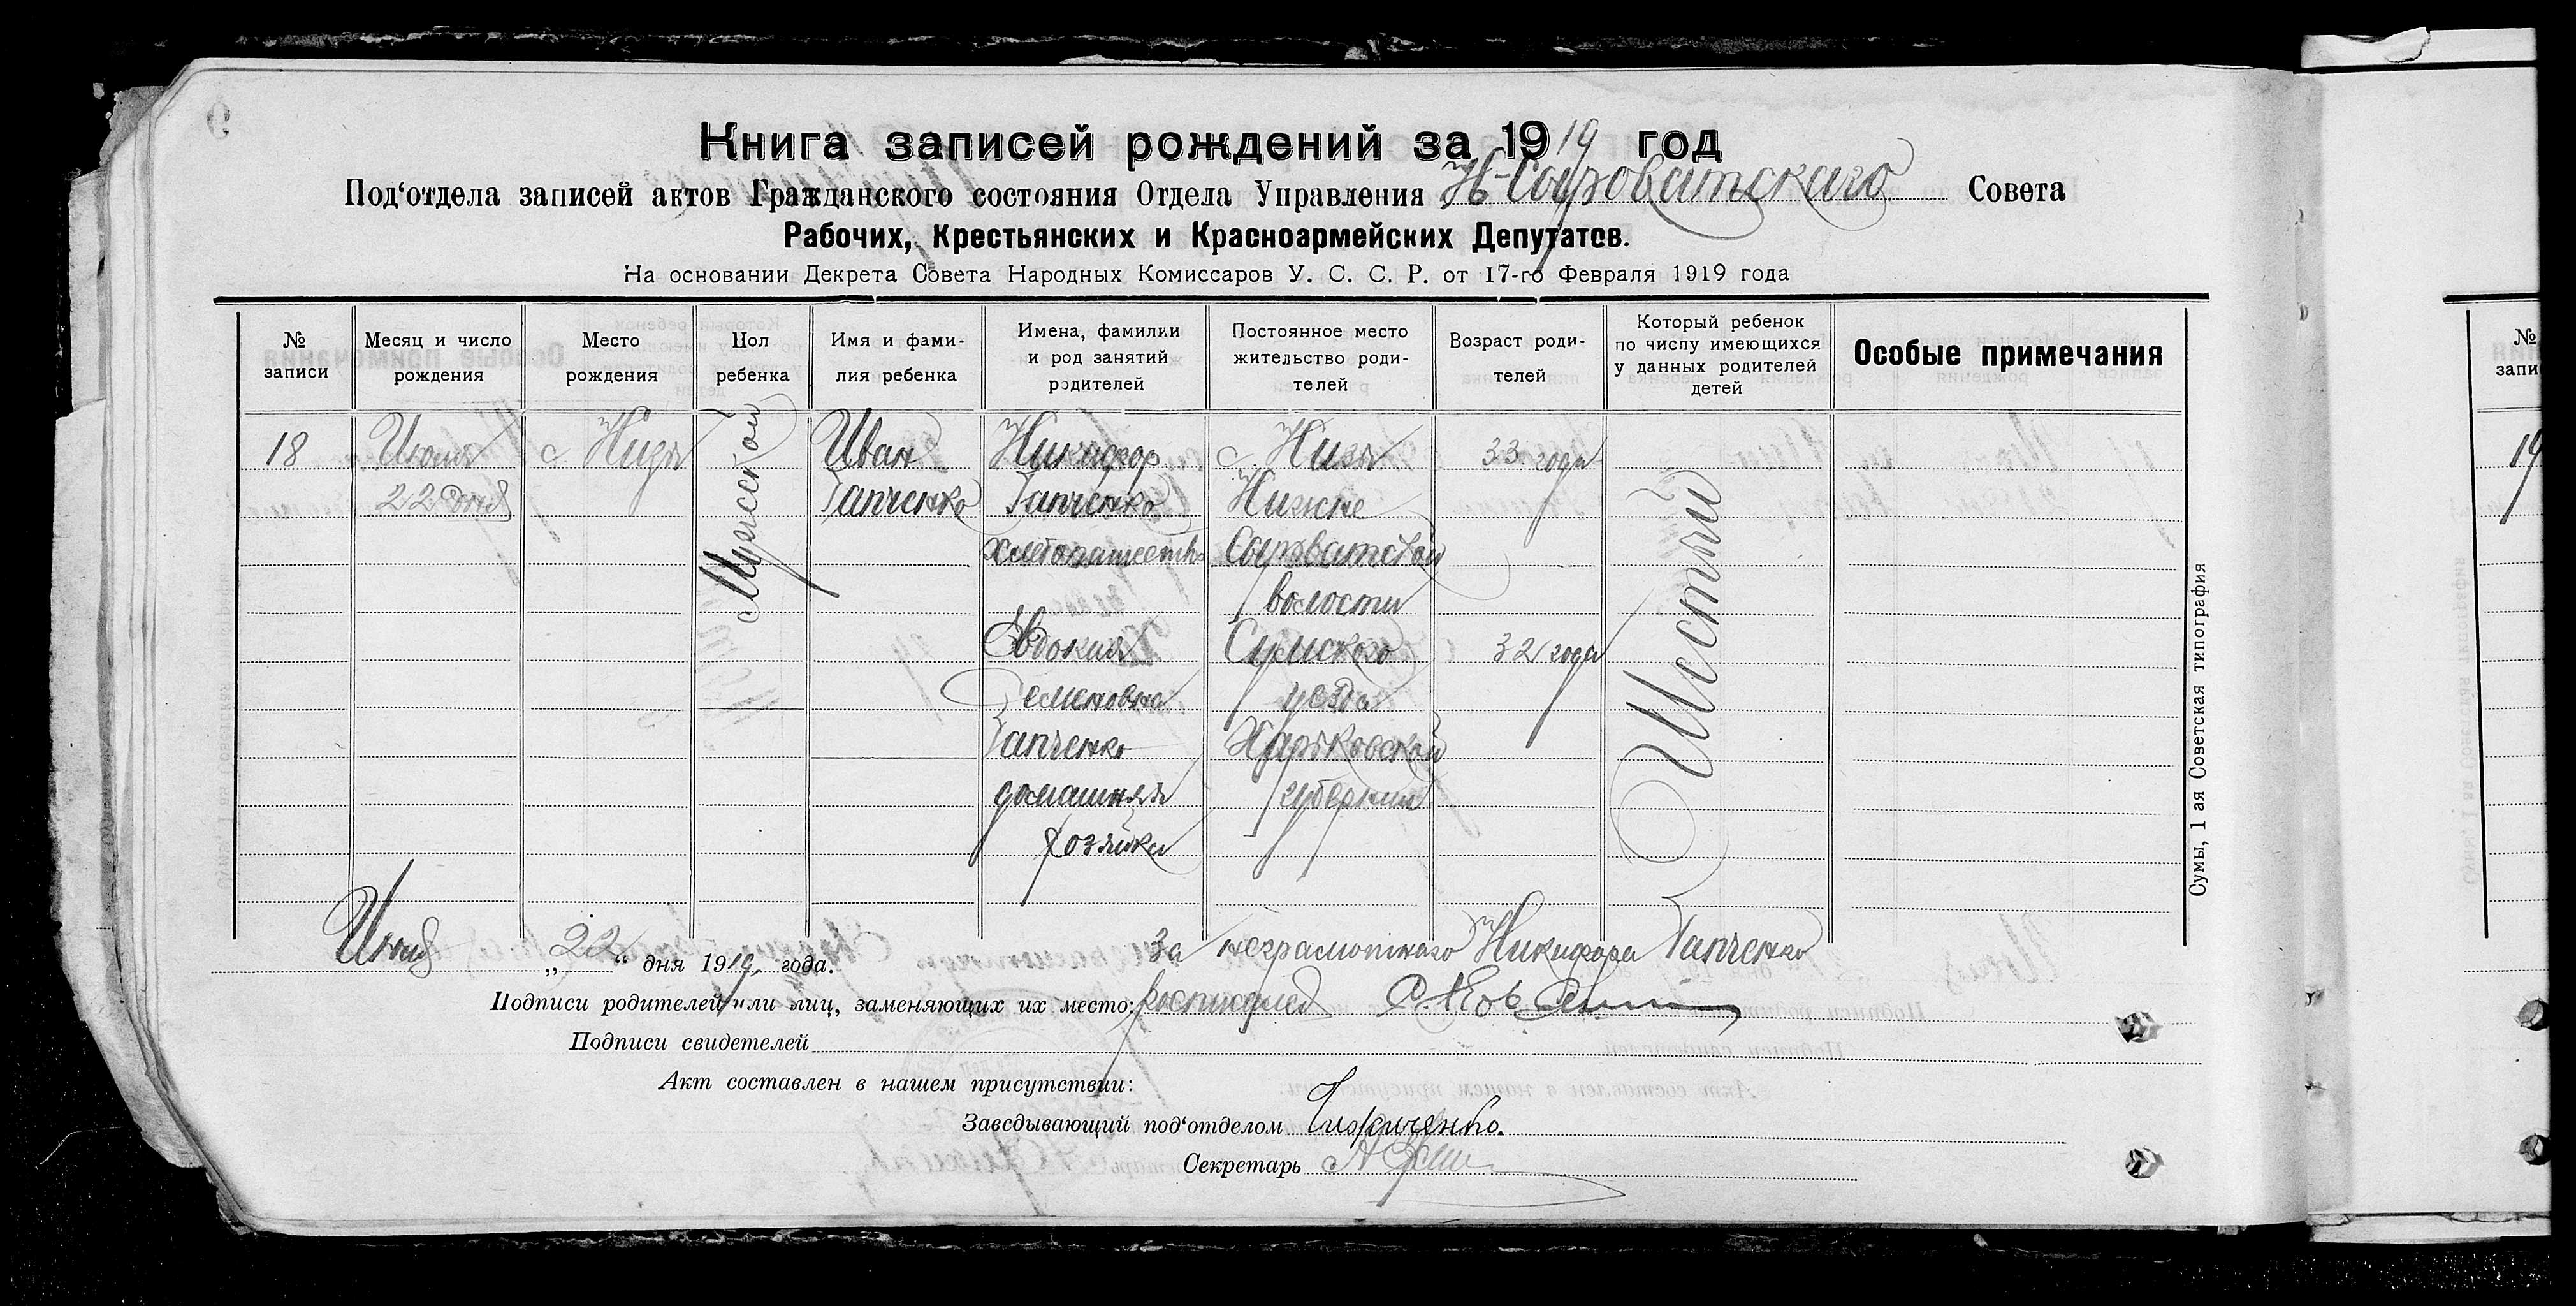 Книга записей рождений за 1919 год
Под‘отдела записей актов Гражданского состояния Отдела Управления Н-Сыроватскаго Совета
Рабочих, Крестьянских и Красноармейских Депутатов.
На основании Декрета Совета Народных Комиссаров У. С. С. Р. от 17-го Февраля 1919 года
№ записи
Месяц и число рождения
Место рождения
Пол ребенка
Имя и фами-
лия ребенка
Имена, фамилии
и род занятий
родителей
Постоянное место
жительство роди-
телей
Возраст роди-
телей
Который ребенок
по числу имеющихся
у данных родителей
детей
Особые примечания
18
Июня
22 дня
с Низы
Мужской
Иван
Гапченко
Никифор
Гапченко
хлебопашество
Евдокия
Семеновна
Гапченко
домашняя
хозяйка
с. Низы
Нижне
Сыроватской
волости
Сумского
уезда
Харьковской
губернии
33 года
32 года
Шестый
Сумы, 1 ая Советская типография
Июня „22“ дня 1919 года.
За неграмотнаго Никифора Гапченко
Подписи родителей или лиц, заменяющих их место: росписался
Подписи свидетелей
Акт составлен в нашем присутствии:
Заведывающий под‘отделом
Секретарь
№
запи
19